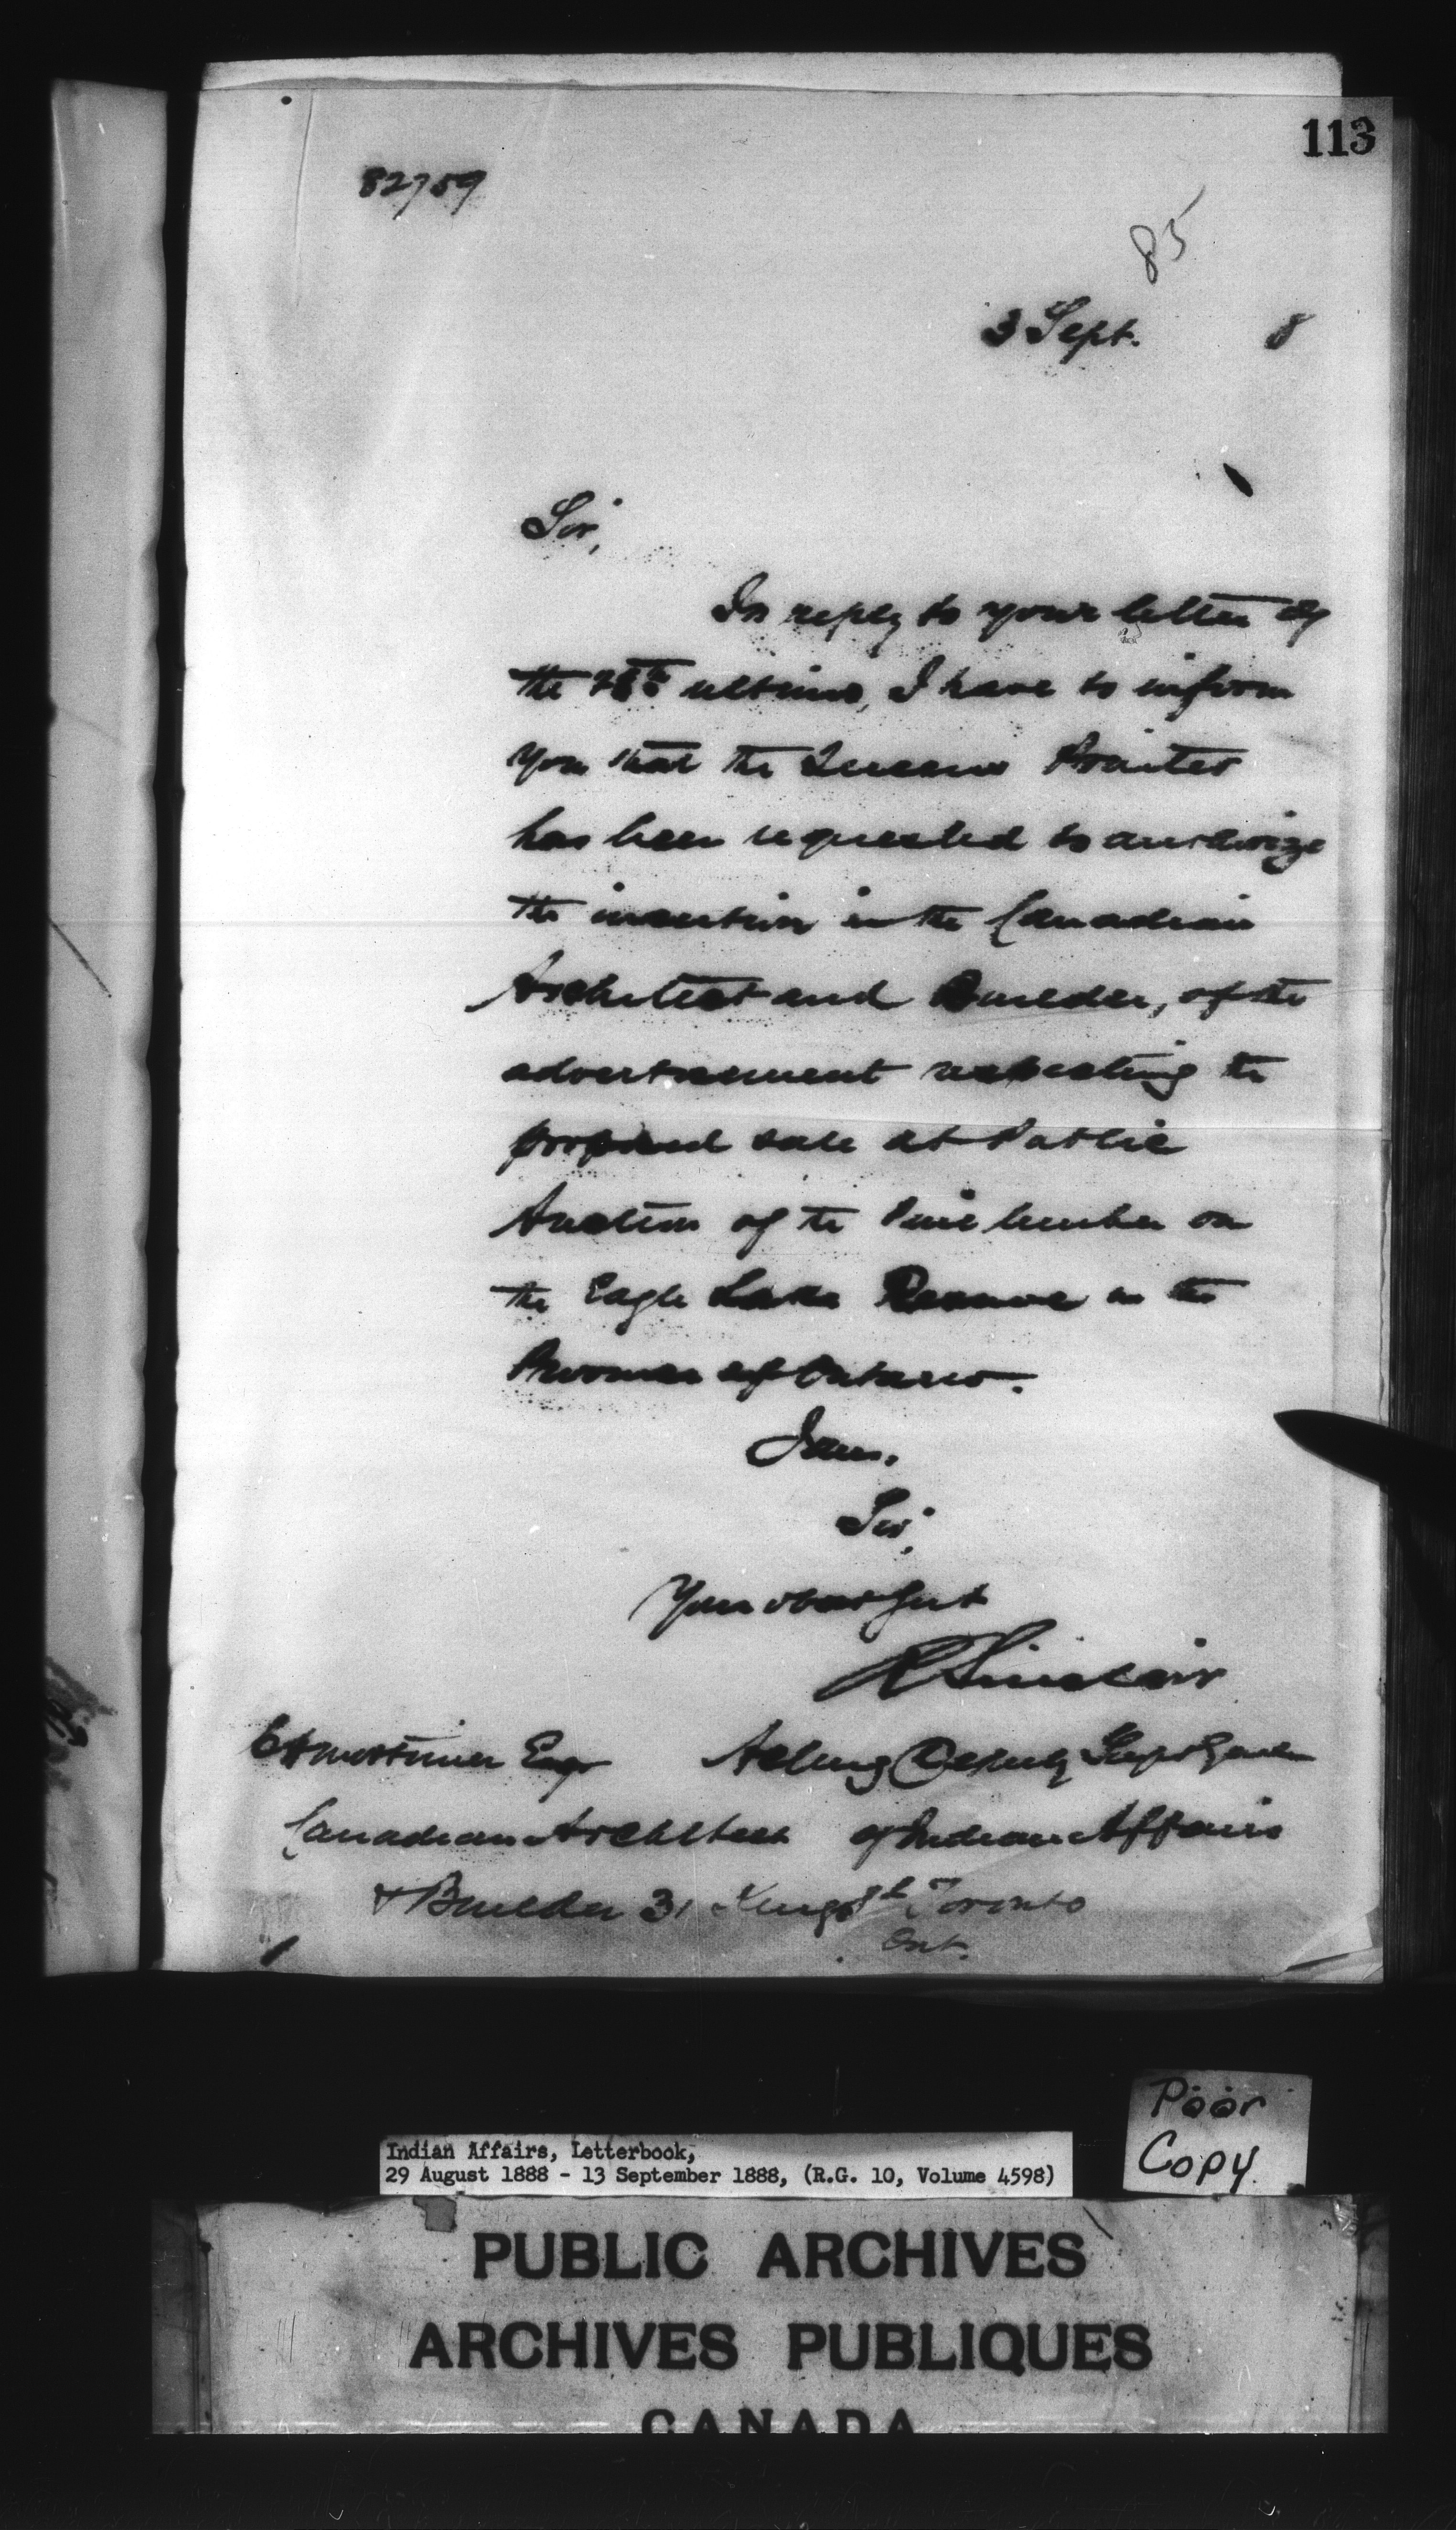 113
82759
85
3 Sept. 8
Sir,
In reply to your letter of
the 28th ultimo, I have to inform
you that the Queens Printer
has been requested to authorize
the insertion in the Canadian
Architect and Builder, of the
advertisement respecting the
proposed sale at Public
Auction of the Pine timber on
the Eagle Lake Reserve in the
Province of Ontario.
I am,
Sir,
Your obedt Servt
R Sinclair
Mortimer Esqr Acting Deputy Supt Genl
Canadian Architect of Indian Affairs
& Builder 31 King St Toronto
Ont.
Poor
Copy
Indian Affairs, Letterbook,
29 August 1888 - 13 September 1888, (R.G. 10, Volume 4598)
PUBLIC ARCHIVES
ARCHIVES PUBLIQUES
CANADA